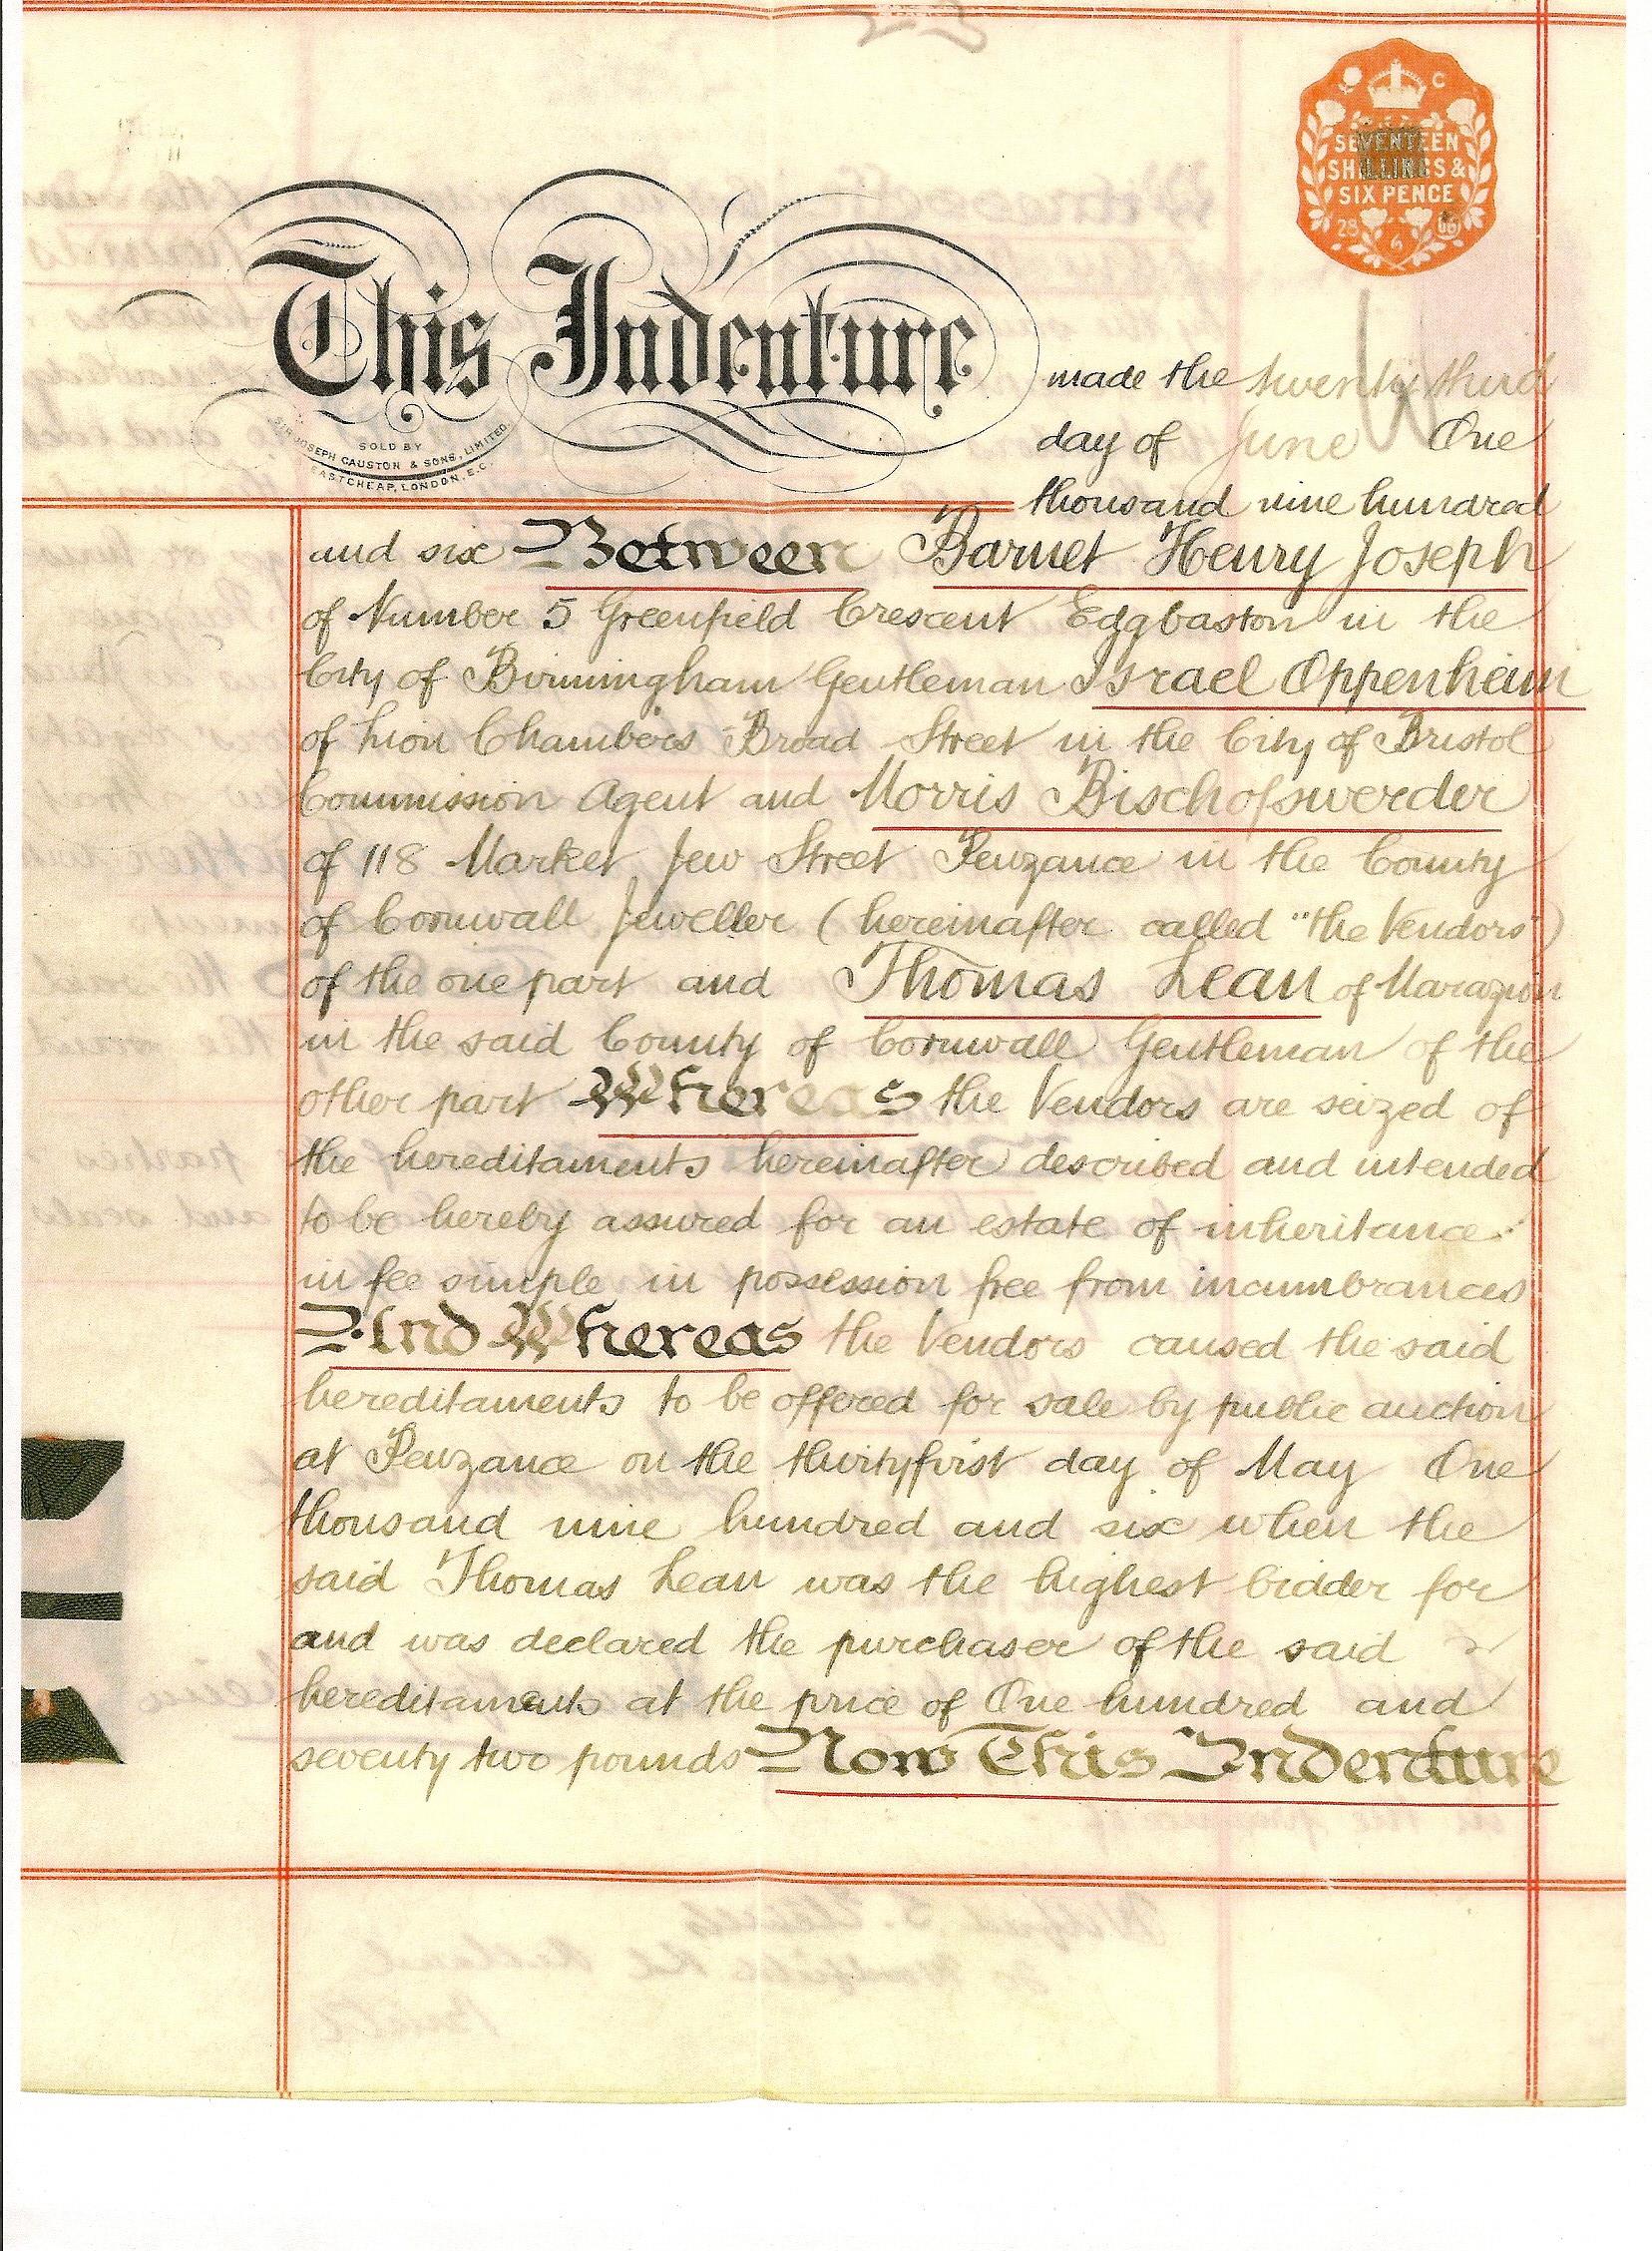 C
SEVENTEEN
SHILLINGS &
SIX PENCE
28
6
This Indenture
SOLD BY
SIR JOSEPH CAUSTON & SONS, LIMITED.
EASTCHEAP, LONDON, E.C.
made the twenty third
day of June One
thousand nine hundred
and six Between Barnet Henry Joseph
of Number 5 Greenfield Crescent Edgbaston in the
City of Birmingham Gentleman Israel Oppenheim
of Lion Chambers Broad Street in the City of Bristol
Commission Agent and Morris Bischofswerder
of 118 Market Jew Street Penzance in the County
of Cornwall Jeweller (hereinafter called "the Vendors")
of the one part and Thomas Lean of Marazion
in the said County of Cornwall Gentleman of the
other part Whereas the Vendors are seized of
the hereditaments hereinafter described and intended
to be hereby assured for an estate of inheritance
in fee simple in possession free from incumbrances
And Whereas the Vendors caused the said
hereditaments to be offered for sale by public auction
at Penzance on the thirtyfirst day of May One
thousand nine hundred and six when the
said Thomas Lean was the highest bidder for
and was declared the purchaser of the said
hereditaments at the price of One hundred and
seventy two pounds Now This Indenture